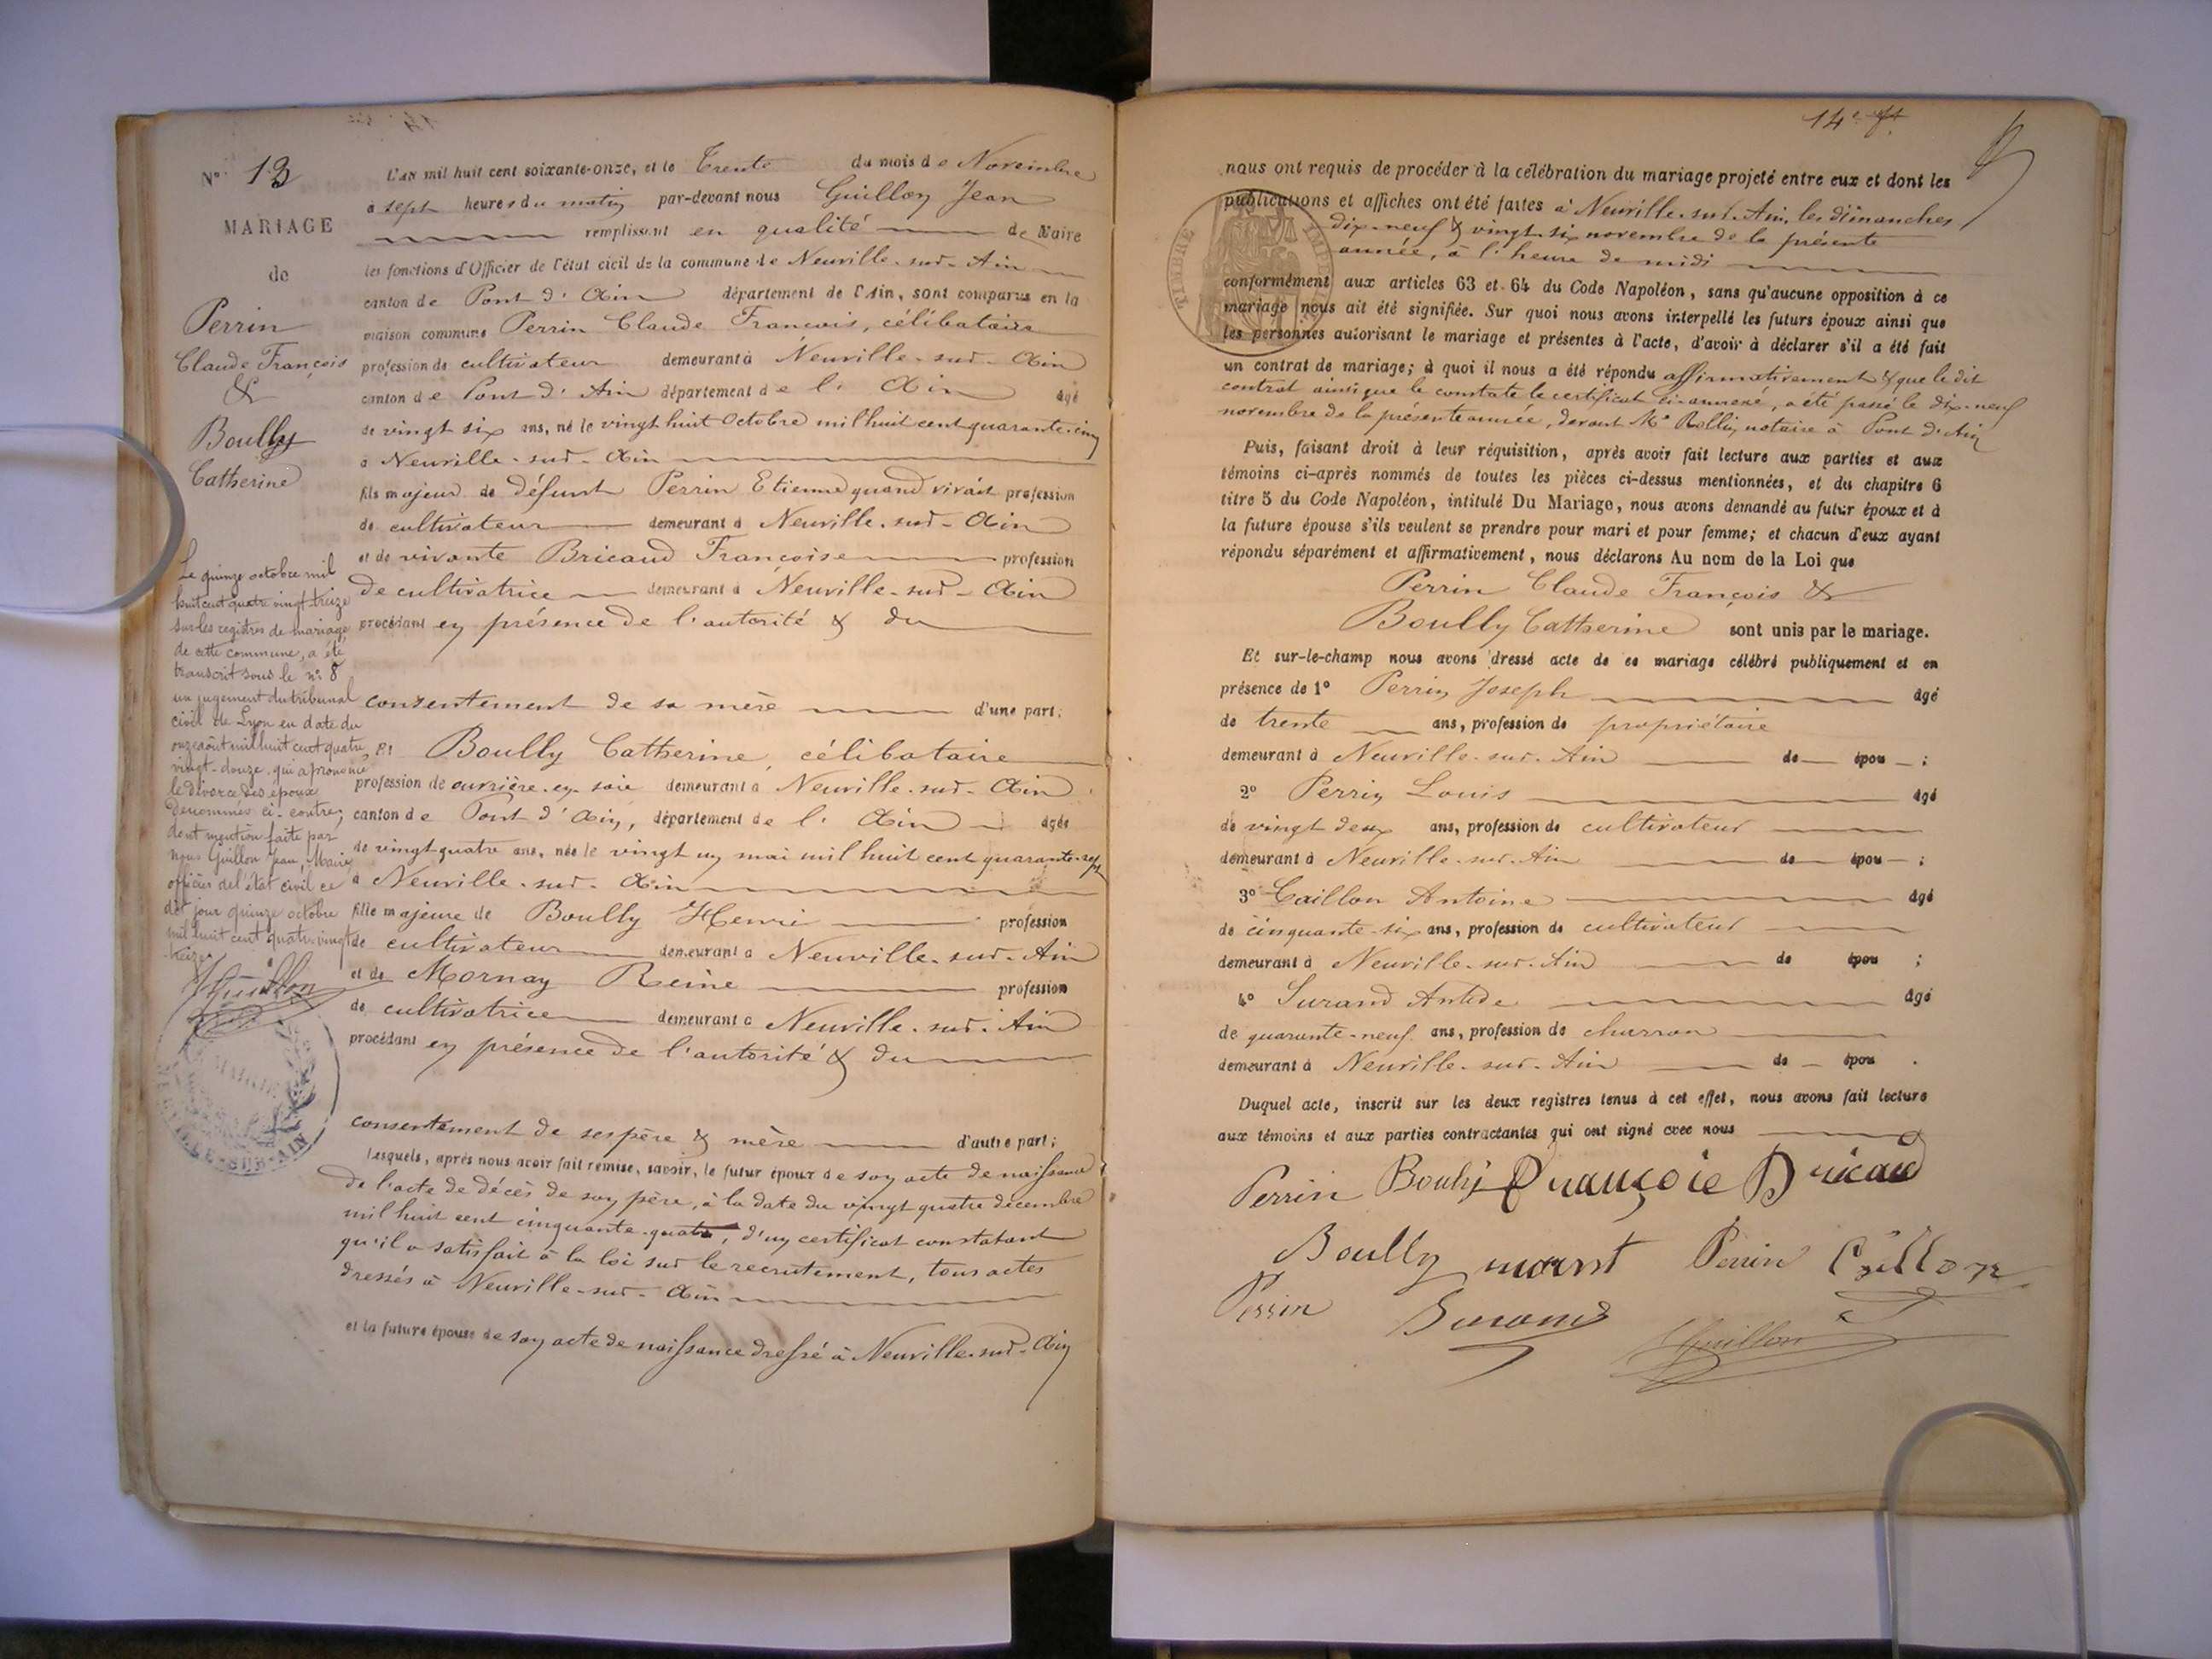 N° 13
MARIAGE
de
Perrin
Claude François
&
Boully
Catherine
Le quinze octobre mil
huit cent quatre vingt-treize
sur les registres de mariage
de cette commune, a été
transcrit sous le n° 8
un jugement du tribunal
civil de Lyon en date du
onze août mil huit cent quatre
vingt-douze qui a prononcé
le divorce des époux
dénommés ci-contre,
dont mention faite par
nous Guillon Jean, Maire
officier de l'état civil ce
dit jour quinze octobre
mil huit cent quatre vingt
treize
Guillon
L'an mil huit cent soixante-onze, et le Trente du mois de Novembre
à sept heures du matin par-devant nous Guillon Jean
remplissant en qualité de Maire
les fonctions d'Officier de l'état civil de la commune de Neuville-sur-Ain
canton de Pont d'Ain département de l'Ain, sont comparus en la
maison commune Perrin Claude François, célibataire
profession de cultivateur demeurant à Neuville-sur-Ain
canton de Pont d'Ain département de l'Ain âgé
de vingt six ans, né le vingt huit Octobre mil huit cent quarante-cinq
à Neuville-sur-Ain
fils majeur de défunt Perrin Etienne quand vivait profession
de cultivateur demeurant à Neuville-sur-Ain
et de vivante Bricaud Françoise profession
de cultivatrice demeurant à Neuville-sur-Ain
procédant en présence de l'autorité & du
consentement de sa mère d'une part;
Et Boully Catherine, célibataire
profession de ouvrière en soie demeurant à Neuville-sur-Ain
canton de Pont d'Ain, département de l'Ain âgée
de vingt quatre ans, née le vingt un mai mil huit cent quarante-sept
à Neuville-sur-Ain
fille majeure de Boully Henri profession
de cultivateur demeurant à Neuville-sur-Ain
et de Mornay Reine profession
de cultivatrice demeurant à Neuville-sur-Ain
procédant en présence de l'autorité & du
consentement de ses père & mère d'autre part;
Lesquels, après nous avoir fait remise, savoir, le futur époux de son acte de naissance
de l'acte de décès de son père, à la date du vingt quatre décembre
mil huit cent cinquante-quatre, d'un certificat constatant
qu'il a satisfait à la loi sur le recrutement, tous actes
dressés à Neuville-sur-Ain
et la future épouse de son acte de naissance dressé à Neuville-sur-Ain
14e
nous ont requis de procéder à la célébration du mariage projeté entre eux et dont les
publications et affiches ont été faites à Neuville-sur-Ain, les dimanches
dix-neuf & vingt-six novembre de la présente
année, à l'heure de midi
TIMBRE IMPERIAL
conformément aux articles 63 et 64 du Code Napoléon, sans qu'aucune opposition à ce
mariage nous ait été signifiée. Sur quoi nous avons interpellé les futurs époux ainsi que
les personnes autorisant le mariage et présentes à l'acte, d'avoir à déclarer s'il a été fait
un contrat de mariage; à quoi il nous a été répondu affirmativement & que le dit
contrat ainsi que le constate le certificat ci-annexé, a été passé le dix-neuf
novembre de la présente année, devant Me Rollin, notaire à Pont d'Ain
Puis, faisant droit à leur réquisition, après avoir fait lecture aux parties et aux
témoins ci-après nommés de toutes les pièces ci-dessus mentionnées, et du chapitre 6
titre 5 du Code Napoléon, intitulé Du Mariage, nous avons demandé au futur époux et à
la future épouse s'ils veulent se prendre pour mari et pour femme; et chacun d'eux ayant
répondu séparément et affirmativement, nous déclarons Au nom de la Loi que
Perrin Claude François &
Boully Catherine sont unis par le mariage.
Et sur-le-champ nous avons dressé acte de ce mariage célébré publiquement et en
présence de 1° Perrin Joseph âgé
de trente ans, profession de propriétaire
demeurant à Neuville-sur-Ain de épou ;
2° Perrin Louis âgé
de vingt deux ans, profession de cultivateur
demeurant à Neuville-sur-Ain de épou ;
3° Caillon Antoine âgé
de cinquante-six ans, profession de cultivateur
demeurant à Neuville-sur-Ain de épou ;
4° Surand Antide âgé
de quarante-neuf ans, profession de charron
demeurant à Neuville-sur-Ain de épou .
Duquel acte, inscrit sur les deux registres tenus à cet effet, nous avons fait lecture
aux témoins et aux parties contractantes qui ont signé avec nous
Perrin Françoise Bricaud
Boully Perrin
Perrin Surand Guillon